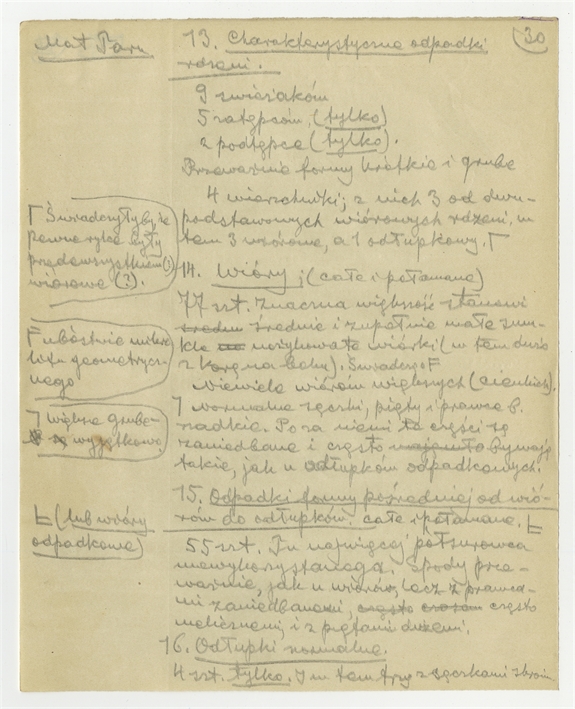 Mat Parn
13. Charakterystyczne odpadki
30
rdzeni.
9 zwierciaków
5 zatępców, (tylko)
2 podtępce (tylko).
Przeważnie formy krótkie i grube
4 wierzchniki; z nich 3 od dwu-
podstawowych wiórowych rdzeni, w
tem 3 wiórowe, a 1 odłupkowy. Γ
Γ Świadczyłyby, że
pewne rylce były
przedewszystkiem (?)
wiórowe (?).
14. Wióry; (całe i połamane)
77 szt. Znaczna większość stanowi
średnie i zupełnie małe smu-
kłe niezużytkowane wiórki (w tem dużo
z korą na boku). Świadczą F
F ubóstwie mikro-
litu geometrycz-
nego
Niewiele wiórów większych (cienkich).
normalne sęczki, pięty i prawce b.
rzadkie. Poza niemi części są
zaniedbane i często bywają
takie, jak u odłupków odpadkowych.
większe grube
są wyjątkowo
15. Odpadki formy pośredniej od wió-
rów do odłupków, całe i połamane.
(lub wióry
odpadkowe)
55 szt. Tu najwięcej półsurowca
niewykorzystanego. Spody prze-
ważnie, jak u wiórów, lecz z prawca-
mi zaniedbanemi, często
nielicznemi, i z piętami dużemi.
16. Odłupki normalne.
4 szt. tylko. I w tem trzy z sęczkami